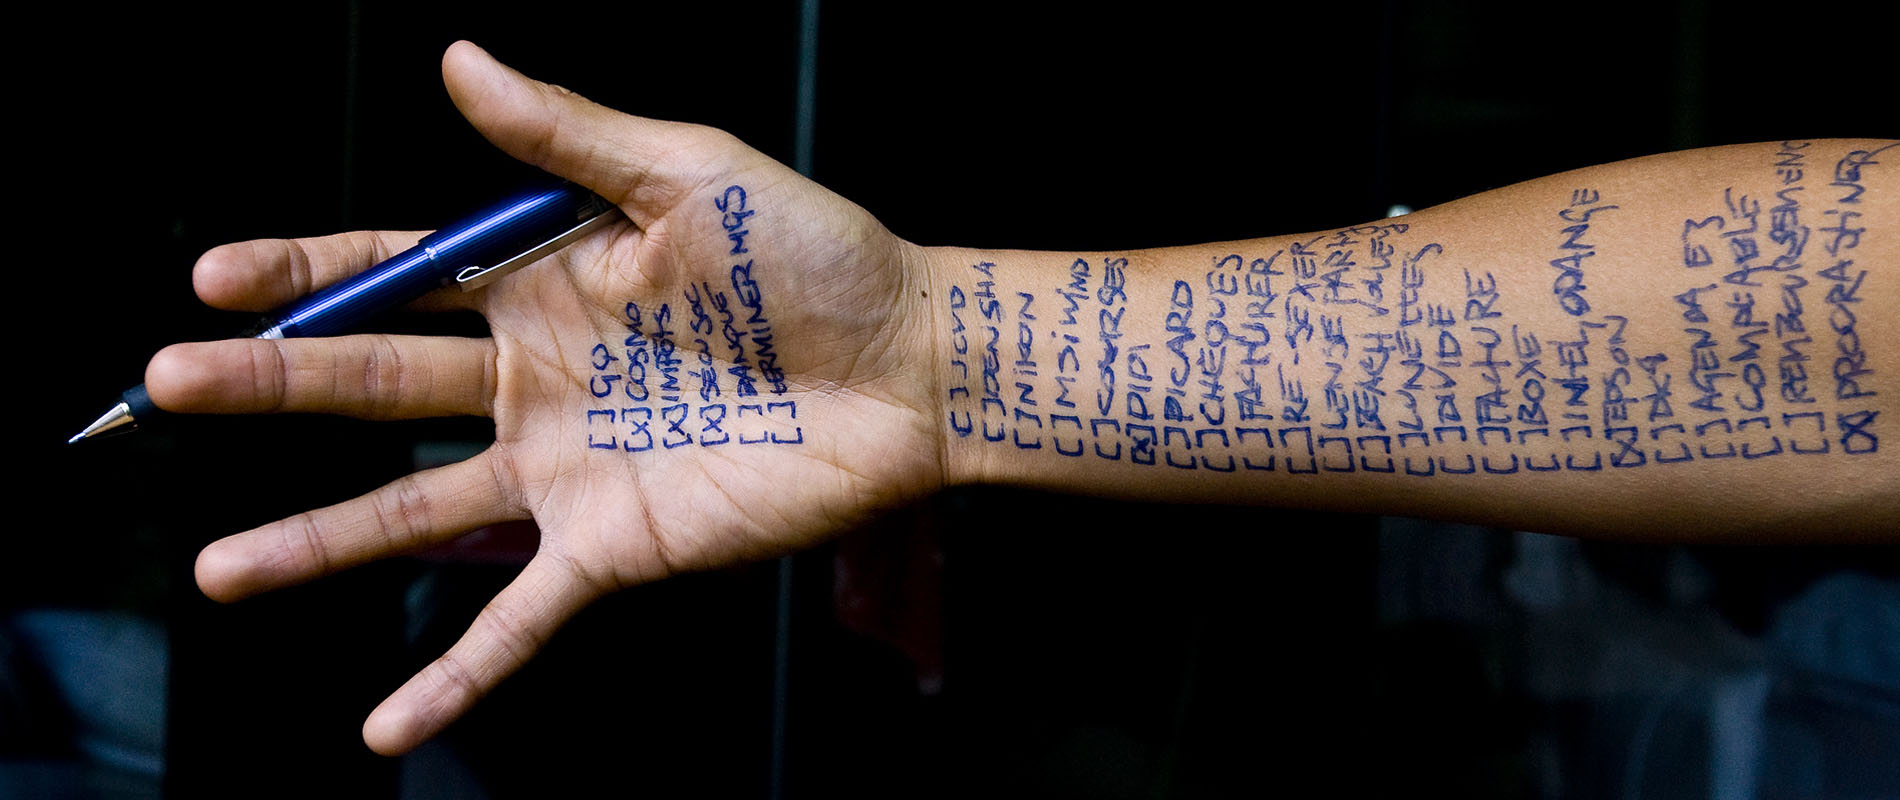 [ ] GQ
[X] COSMO
[X] IMPOTS
[X] SÉCU SOC
[ ] BANQUE
[ ] TERMINER MGS
[ ] JCVD
[ ] JOENSHA
[ ] NIKON
[ ] MSiWIND
[ ] COURSES
[X] DIDI
[ ] PICARD
[ ] CHEQUES
[ ] FACHURER
[ ] RE-SEXER
[ ] LENSE PARTY
[ ] BEACH VOLLEY
[ ] LUNETTES
[ ] DIVIDE
[ ] FACHURE
[ ] BOXE
[ ] INTEL, ORANGE
[X] EPSON
[ ] DK4
[ ] AGENDA E3
[ ] COMPTABLE
[ ] REMBOURSEMENT
[X] PROCRASTINER